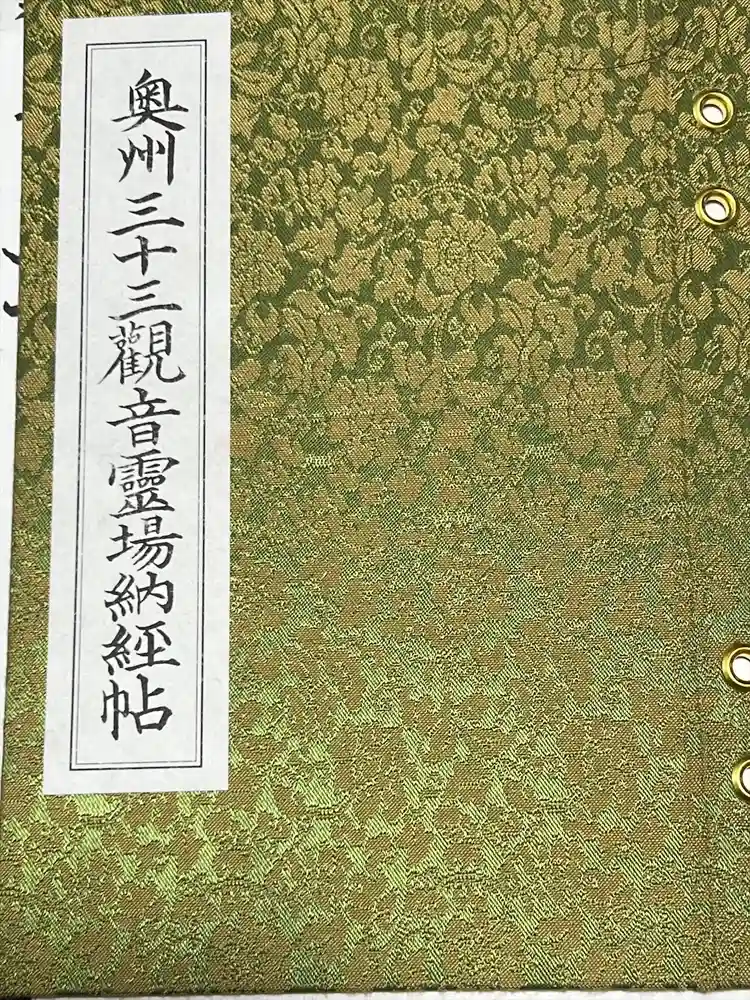 奧州三十三觀音靈場納經帖